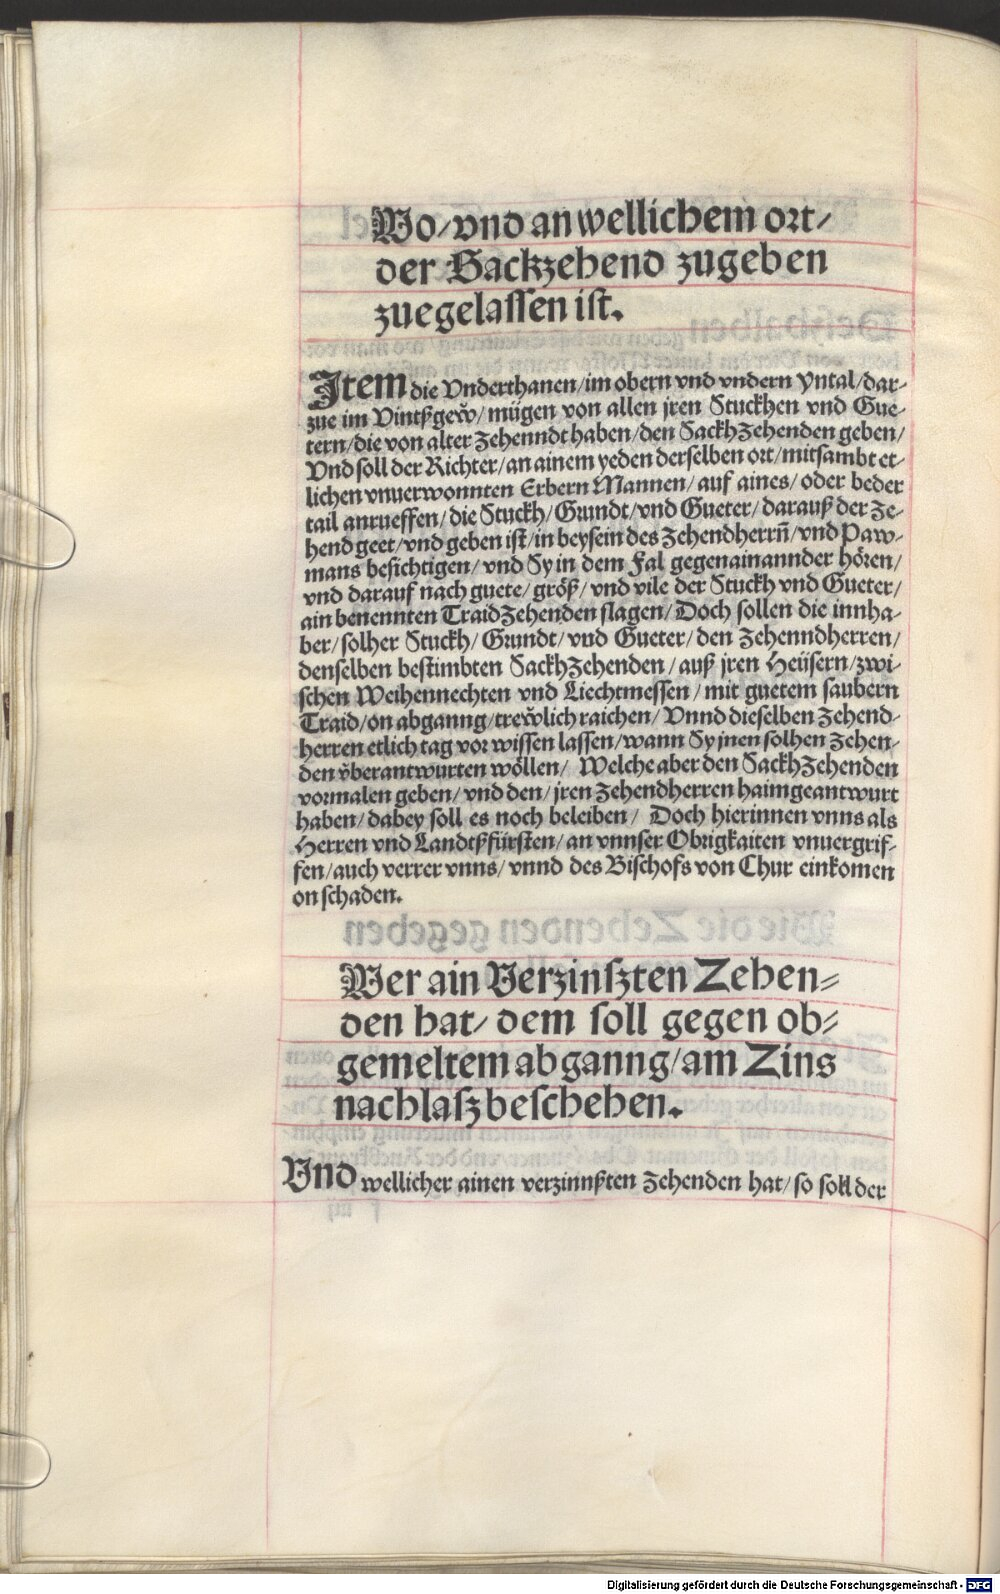 Wo/vnd an wellichem ort/
der Sackzehend zugeben
zuegelassen ist.
Item die Vnderthanen/im obern vnd vndern Yntal/dar-
zue im Vintßgew̌/mügen von allen jren Stuckhen vnd Gue-
tern/die von alter Zehenndt haben/den SackhZehenden geben/
Vnd soll der Richter/an ainem yeden derselben ort/mitsambt et-
lichen vnuerwonnten Erbern Mannen/auf aines/oder beder
tail anrueffen/die Stuckh/Grundt/vnd Gueter/darauß der Ze-
hend geet/vnd geben ist/in beysein des Zehendherrn̄/vnd Paw-
mans besichtigen/vnd Sy in dem Fal gegenainannder hören/
vnd darauf nach guete/größ/vnd vile der Stuckh vnd Gueter/
ain benennten TraidZehenden slagen/Doch sollen die innha-
ber/solher Stuckh/Grundt/vnd Gueter/den Zehenndherren/
denselben bestimbten SackhZehenden/auß jren Heüsern/zwi-
schen Weihennechten vnd Liechtmessen/mit guetem saubern
Traid/on abganng/trew̌lich raichen/Vnnd dieselben Zehend-
herren etlich tag vor wissen lassen/wann Sy jnen solhen Zehen-
den v̌berantwurten wöllen/Welche aber den SackhZehenden
vormalen geben/vnd den/jren Zehendherren haimgeantwurt
haben/dabey soll es noch beleiben/Doch hierinnen vnns als
Herren vnd Landtßfürsten/an vnnser Obrigkaiten vnuergrif-
fen/auch verrer vnns/vnnd des Bischofs von Chur einkomen
on schaden.
Wer ain Verzinszten Zehen-
den hat/dem soll gegen ob-
gemeltem abganng/am Zins
nachlasz beschehen.
Vnd wellicher ainen verzinnßten Zehenden hat/so soll der
Digitalisierung gefördert durch die Deutsche Forschungsgemeinschaft - DFG